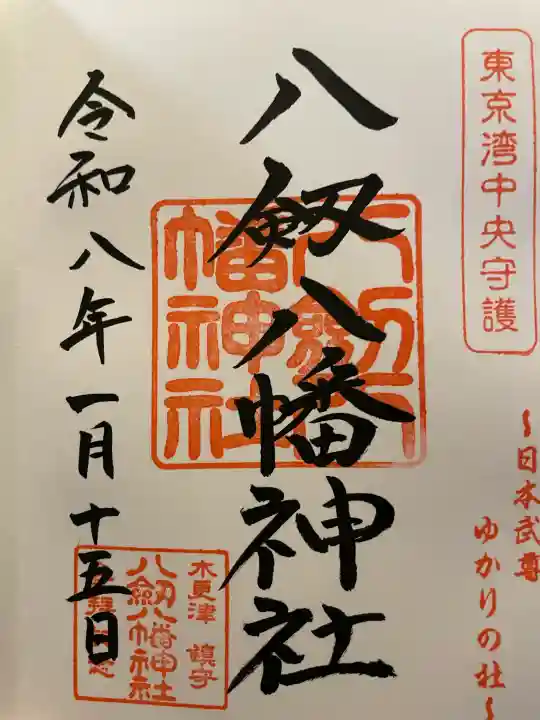 東京湾中央守護
~日本武尊
ゆかりの社~
八剱八幡神社
令和八年一月十五日
木更津 鎮守
八劔八幡神社